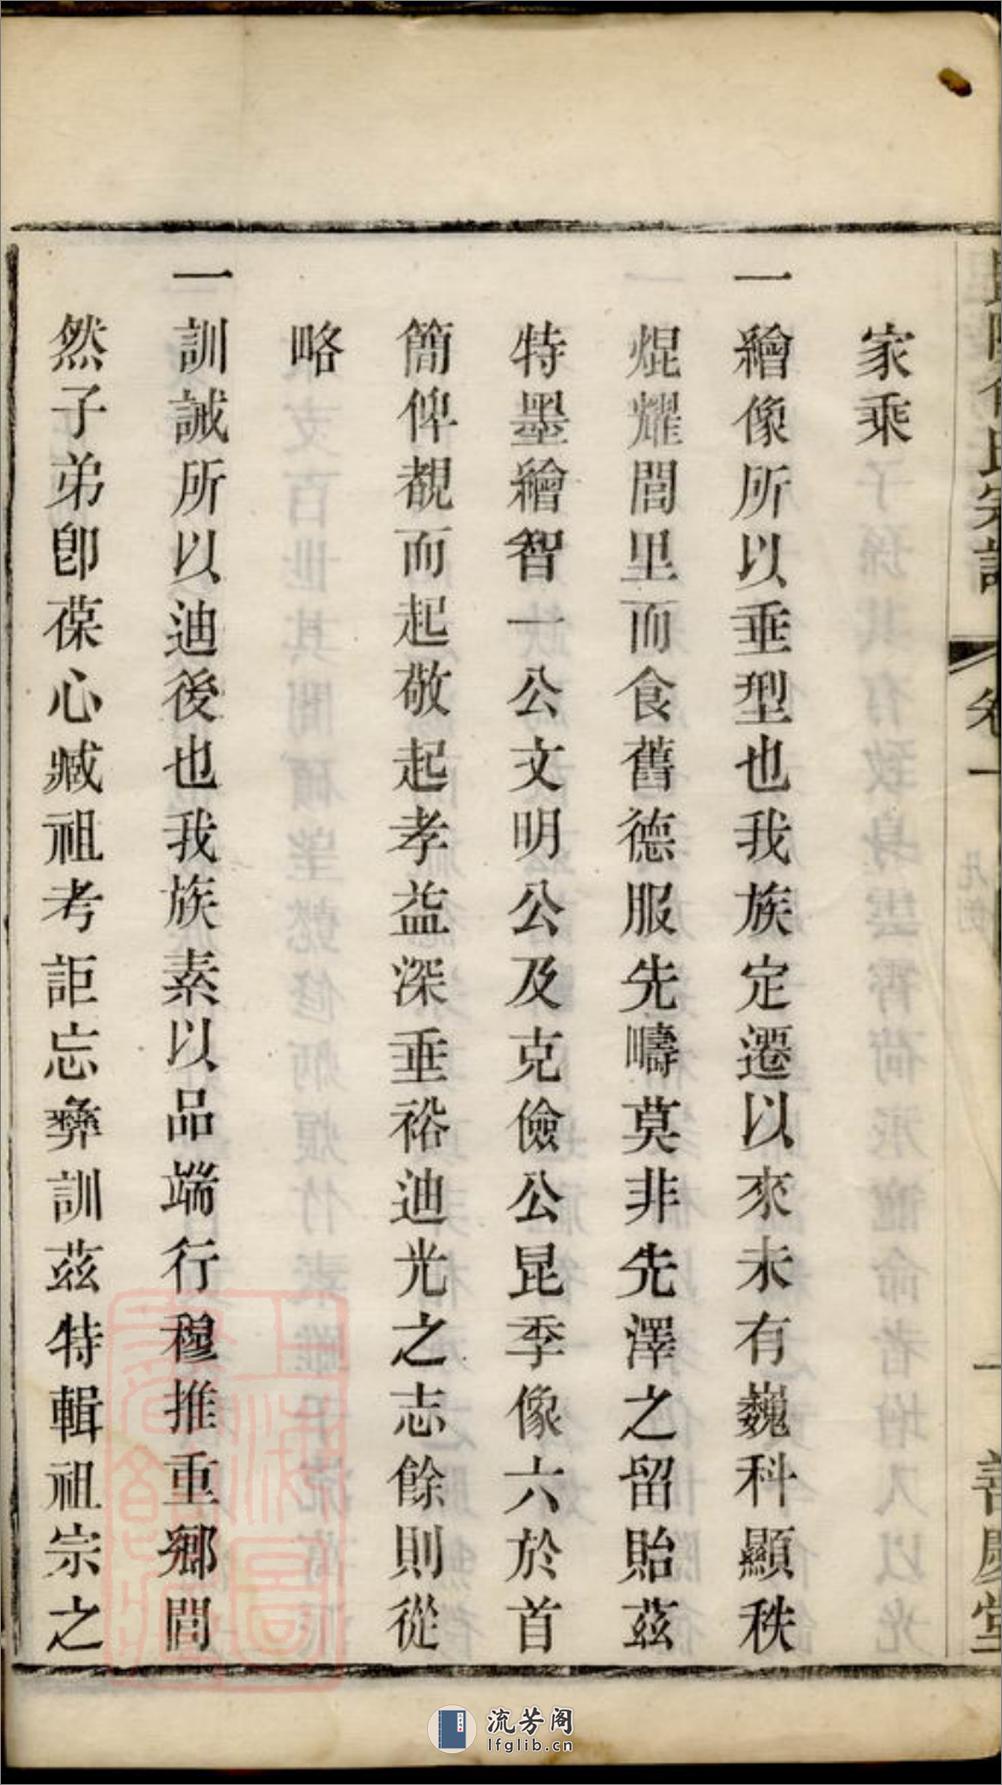 家乘
一繪像所以垂型也我族定遷以來未有巍科顯秩
焜耀閭里而食舊德服先疇莫非先澤之留貽茲
特墨繪智一公文明公及克儉公昆季像六於首
簡俾覩而起敬起孝益深垂裕迪光之志餘則從
略
一訓誡所以迪後也我族素以品端行穆推重鄉閭
然子弟卽葆心臧祖考詎忘彝訓茲特輯祖宗之
氏宗譜
卷一
一
善慶堂
上海圖書館藏
流芳阁
lfglib.cn